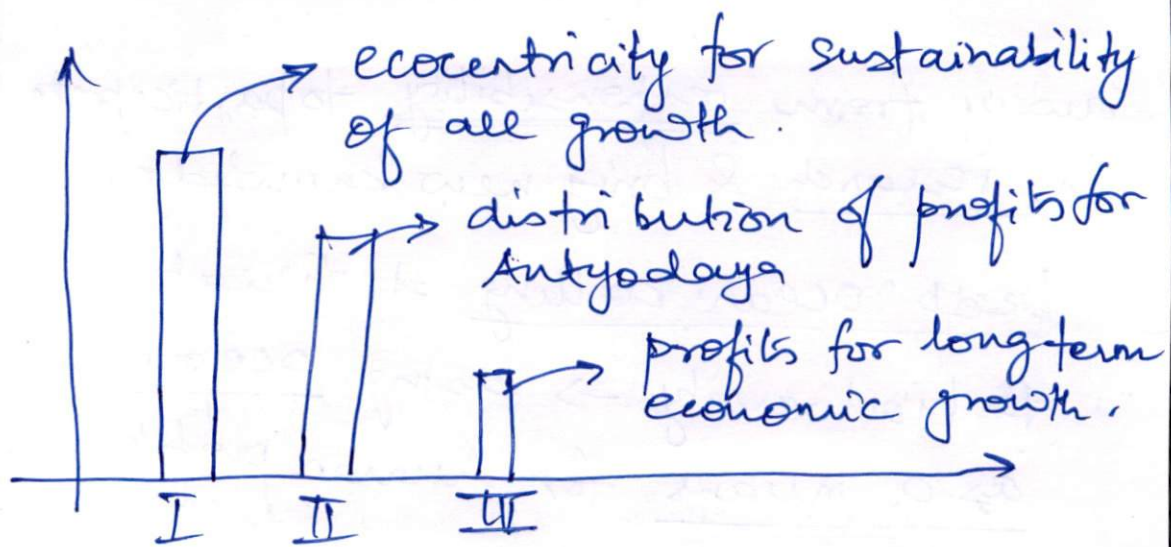 ecocentricity for sustainability
of all growth.
distribution of profits for
Antyodaya
profits for long term
economic growth.
I II III